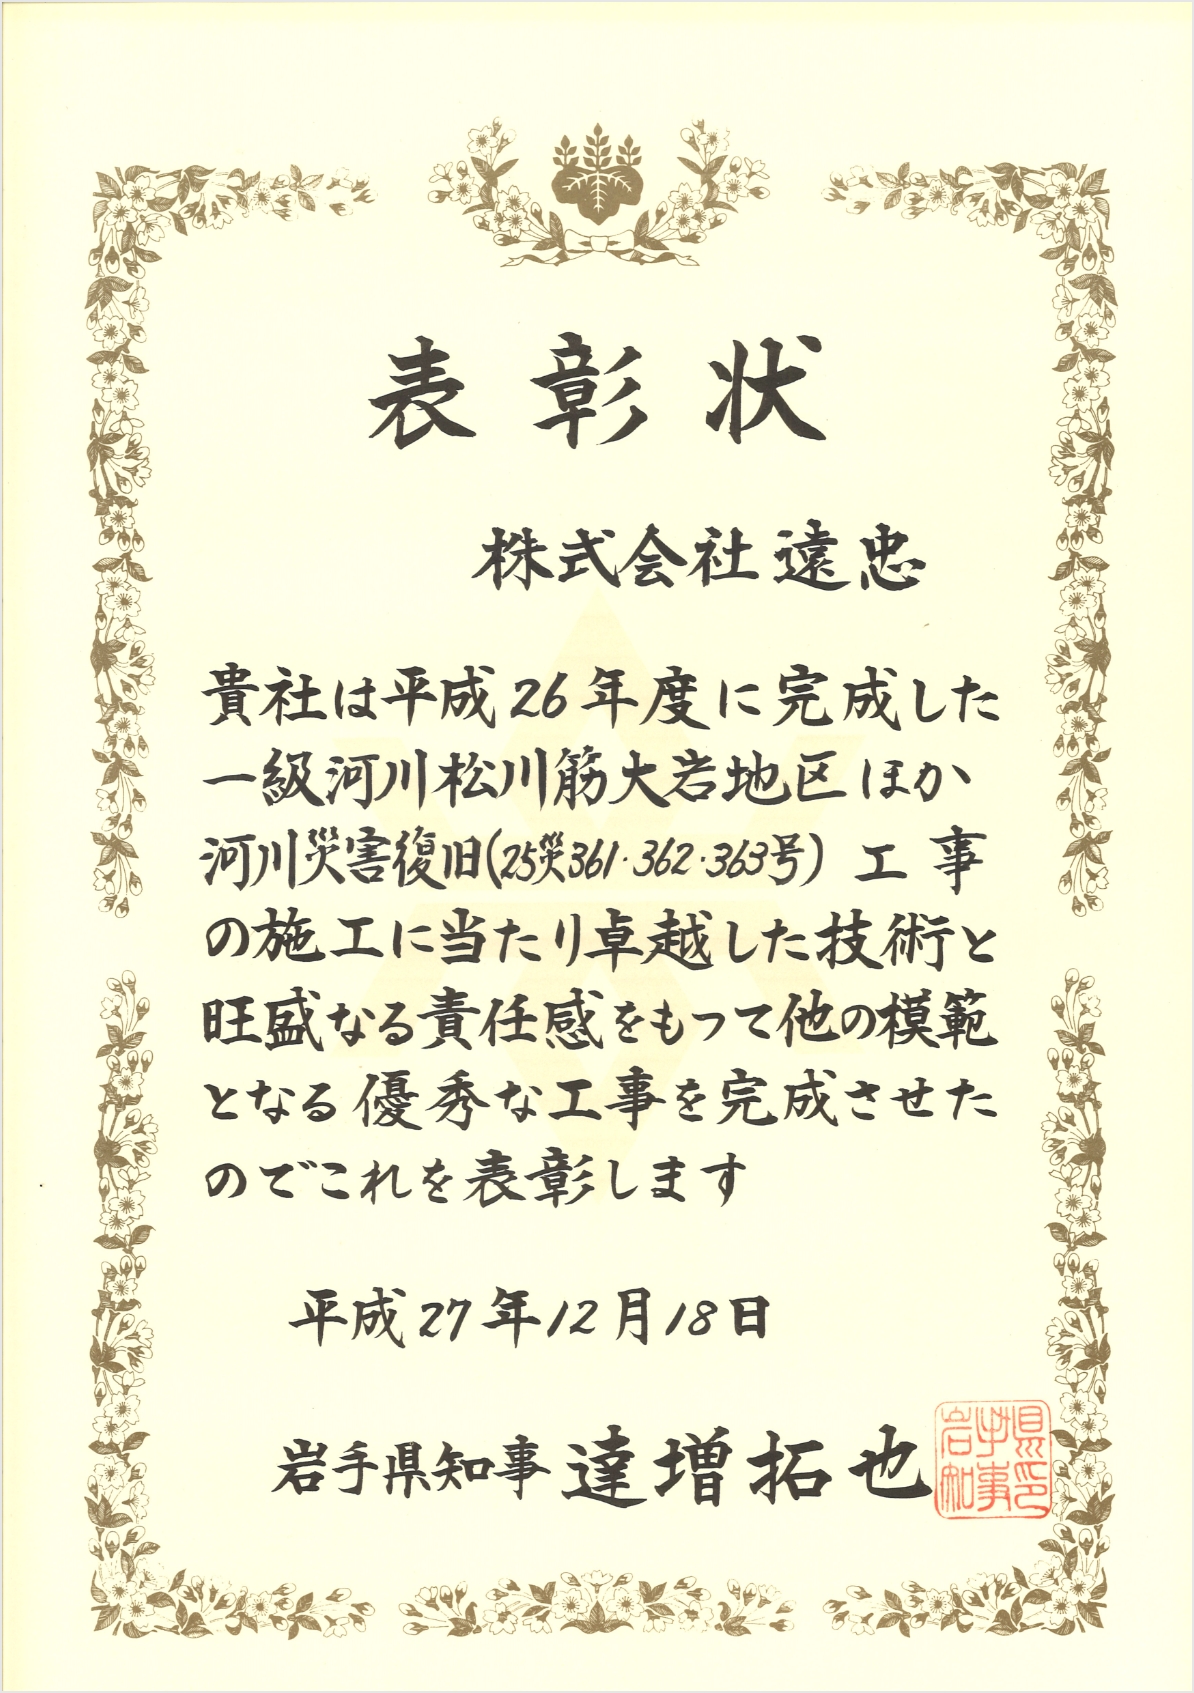 表彰状
株式会社遠忠
貴社は平成26年度に完成した
一級河川松川筋大岩地区ほか
河川災害復旧(25災361・362・363号)工事
の施工に当たり卓越した技術と
旺盛なる責任感をもって他の模範
となる優秀な工事を完成させた
のでこれを表彰します
平成27年12月18日
岩手県知事 達増拓也
岩手県知事印